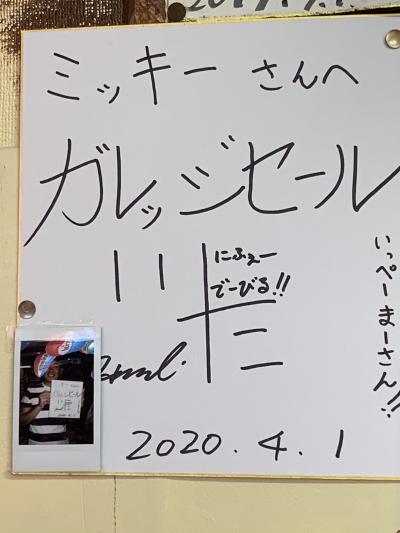 ミッキーさんへ
ガレッジセール
川田
にふぇー
でーびる!!
いっぺーまーさん!!
2020.4.1